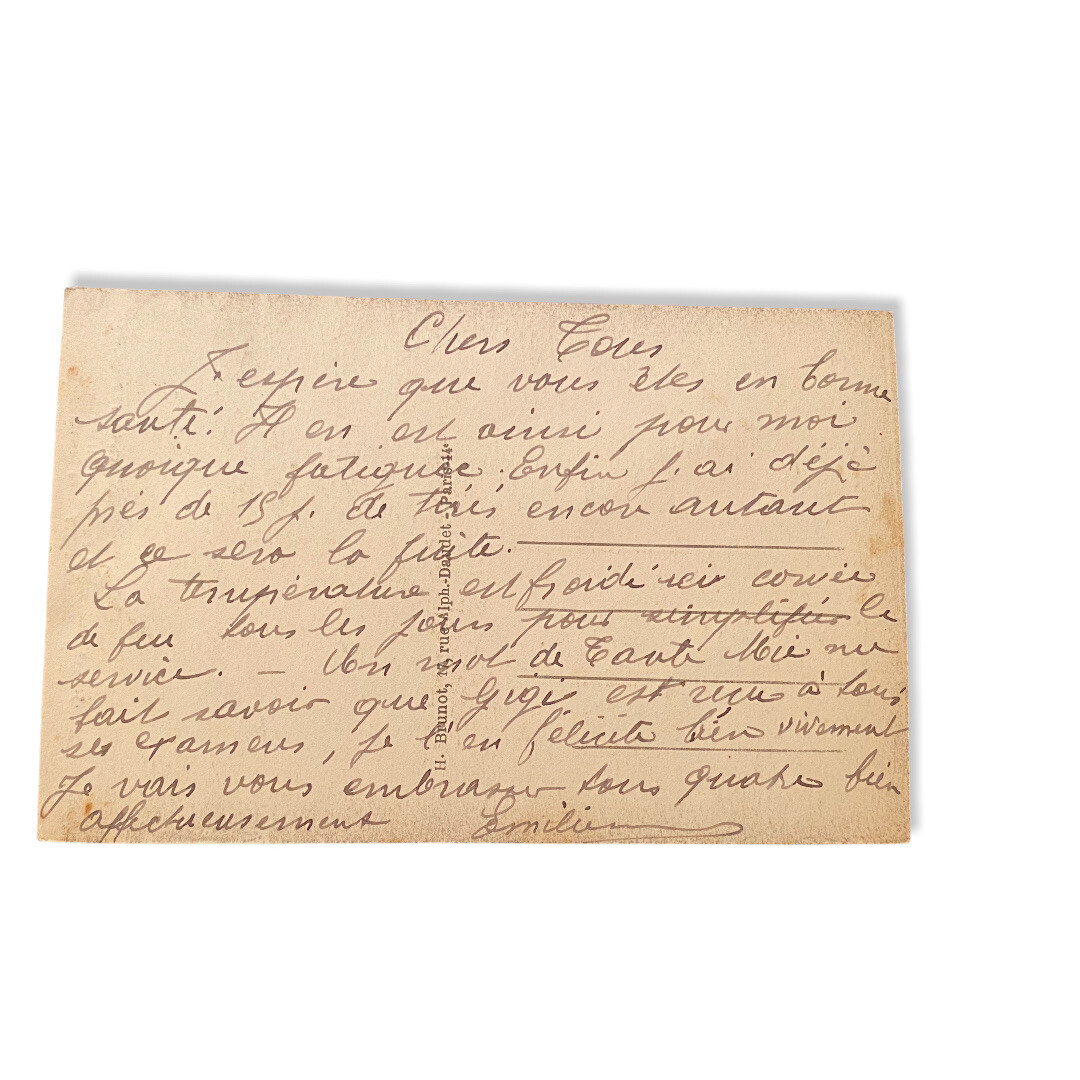 Chers Tous
J'espère que vous êtes en bonne
santé. Il en est ainsi pour moi
quoique fatiguée. Enfin j'ai déjà
près de 15 j. de tirés encor autant
et ce sera la fuite.
La température est froide ici corvée
de feu tous les jours pour simplifier le
service. – Un mot de Tante Mie me
fait savoir que Gigi est reçu à tous
ses examens, je l'en félicite bien vivement
Je vais vous embrasser tous quatre bien
affectueusement Emilie
H. Brunot, rue Alph.-Daudet - Paris-14e